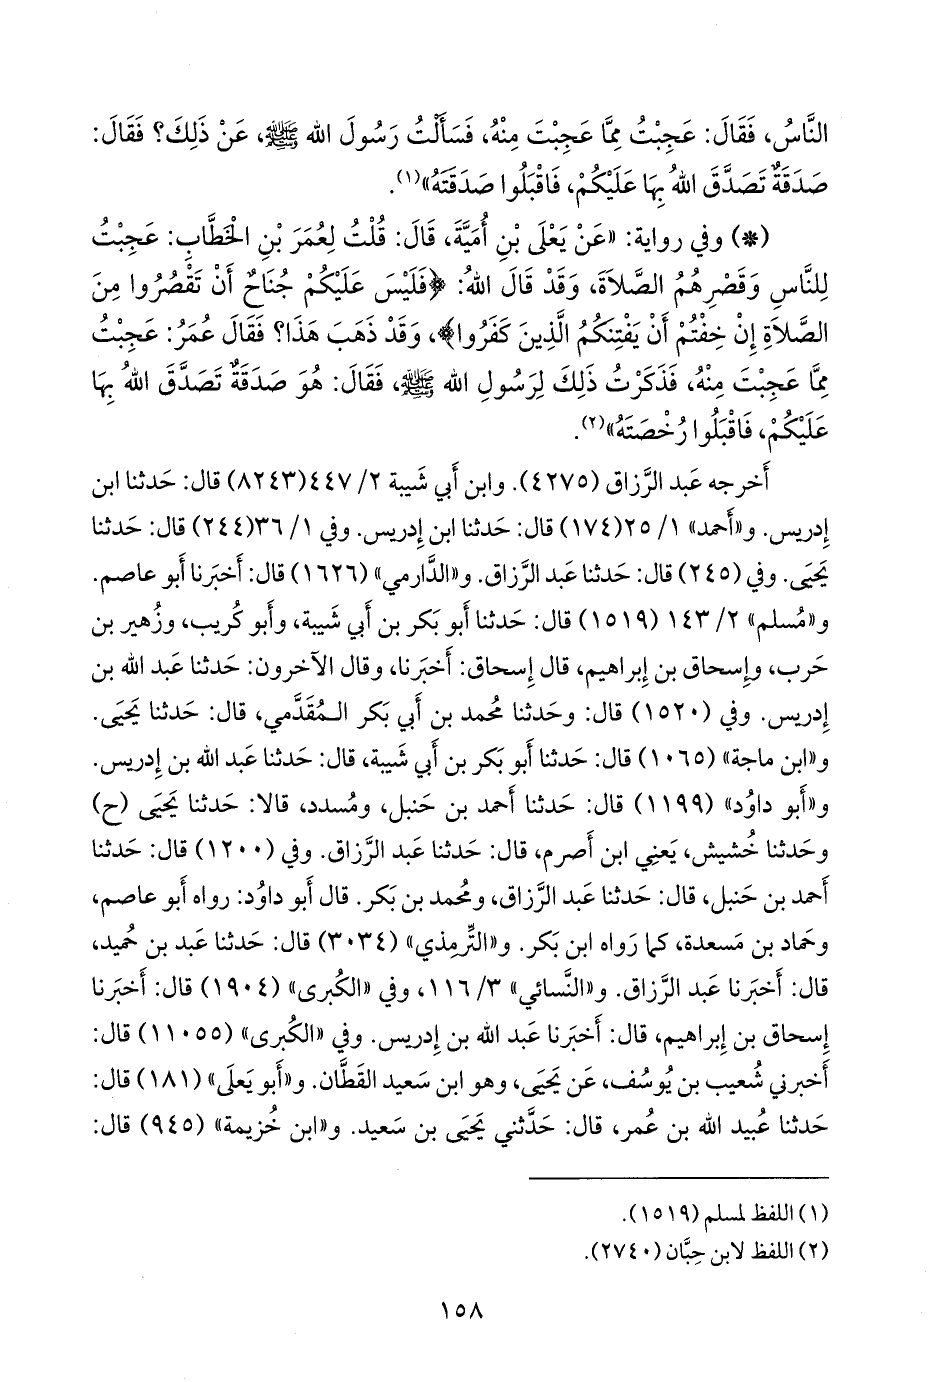 النَّاسُ، فَقَالَ: عَجِبْتُ مِمَّا عَجِبْتَ مِنْهُ، فَسَأَلْتُ رَسُولَ الله ﷺ، عَنْ ذَلِكَ؟ فَقَالَ:
صَدَقَةٌ تَصَدَّقَ اللهُ بِهَا عَلَيْكُمْ، فَاقْبَلُوا صَدَقَتَهُ»(١).
(*) وفي رواية: «عَنْ يَعْلَى بْنِ أُمَيَّةَ، قَالَ: قُلْتُ لِعُمَرَ بْنِ الْخَطَّابِ: عَجِبْتُ
لِلنَّاسِ وَقَصْرِهُمُ الصَّلاَةَ، وَقَدْ قَالَ اللهُ: ﴿فَلَيْسَ عَلَيْكُمْ جُنَاحٌ أَنْ تَقْصُرُوا مِنَ
الصَّلاَةِ إِنْ خِفْتُمْ أَنْ يَفْتِنَكُمُ الَّذِينَ كَفَرُوا﴾، وَقَدْ ذَهَبَ هَذَا؟ فَقَالَ عُمَرُ: عَجِبْتُ
مِمَّا عَجِبْتَ مِنْهُ، فَذَكَرْتُ ذَلِكَ لِرَسُولِ الله ﷺ، فَقَالَ: هُوَ صَدَقَةٌ تَصَدَّقَ اللهُ بِهَا
عَلَيْكُمْ، فَاقْبَلُوا رُخْصَتَهُ»(٢).
أَخرجه عَبد الرَّزاق (٤٢٧٥). وابن أَبي شَيبة ٢/ ٤٤٧(٨٢٤٣) قال: حَدثنا ابن
إِدريس. و«أَحمد» ١/ ٢٥(١٧٤) قال: حَدثنا ابن إِدريس. وفي ١/ ٣٦(٢٤٤) قال: حَدثنا
يَحيَى. وفي (٢٤٥) قال: حَدثنا عَبد الرَّزاق. و«الدَّارمي» (١٦٢٦) قال: أَخبَرنا أَبو عاصم.
و«مُسلم» ٢/ ١٤٣ (١٥١٩) قال: حَدثنا أَبو بَكر بن أَبي شَيبة، وأَبو كُريب، وزُهير بن
حَرب، وإِسحاق بن إِبراهيم، قال إِسحاق: أَخبَرنا، وقال الآخرون: حَدثنا عَبد الله بن
إِدريس. وفي (١٥٢٠) قال: وحَدثنا مُحمد بن أَبي بَكر الـمُقَدَّمي، قال: حَدثنا يَحيَى.
و«ابن ماجة» (١٠٦٥) قال: حَدثنا أَبو بَكر بن أَبي شَيبة، قال: حَدثنا عَبد الله بن إِدريس.
و«أَبو داوُد» (١١٩٩) قال: حَدثنا أَحمد بن حَنبل، ومُسدد، قالا: حَدثنا يَحيَى (ح)
وحَدثنا خُشيش، يَعنِي ابن أَصرم، قال: حَدثنا عَبد الرَّزاق. وفي (١٢٠٠) قال: حَدثنا
أَحمد بن حَنبل، قال: حَدثنا عَبد الرَّزاق، ومُحمد بن بَكر. قال أَبو داوُد: رواه أَبو عاصم،
وحَماد بن مَسعدة، كما رَواه ابن بَكر. و«التِّرمِذي» (٣٠٣٤) قال: حَدثنا عَبد بن حُميد،
قال: أَخبَرنا عَبد الرَّزاق. و«النَّسائي» ٣/ ١١٦، وفي «الكُبرى» (١٩٠٤) قال: أَخبَرنا
إِسحاق بن إِبراهيم، قال: أَخبَرنا عَبد الله بن إِدريس. وفي «الكُبرى» (١١٠٥٥) قال:
أَخبرني شُعيب بن يُوسُف، عَن يَحيَى، وهو ابن سَعيد القَطَّان. و«أَبو يَعلَى» (١٨١) قال:
حَدثنا عُبيد الله بن عُمر، قال: حَدَّثني يَحيَى بن سَعيد. و«ابن خُزيمة» (٩٤٥) قال:
(١) اللفظ لمسلم (١٥١٩).
(٢) اللفظ لابن حِبَّان (٢٧٤٠).
١٥٨